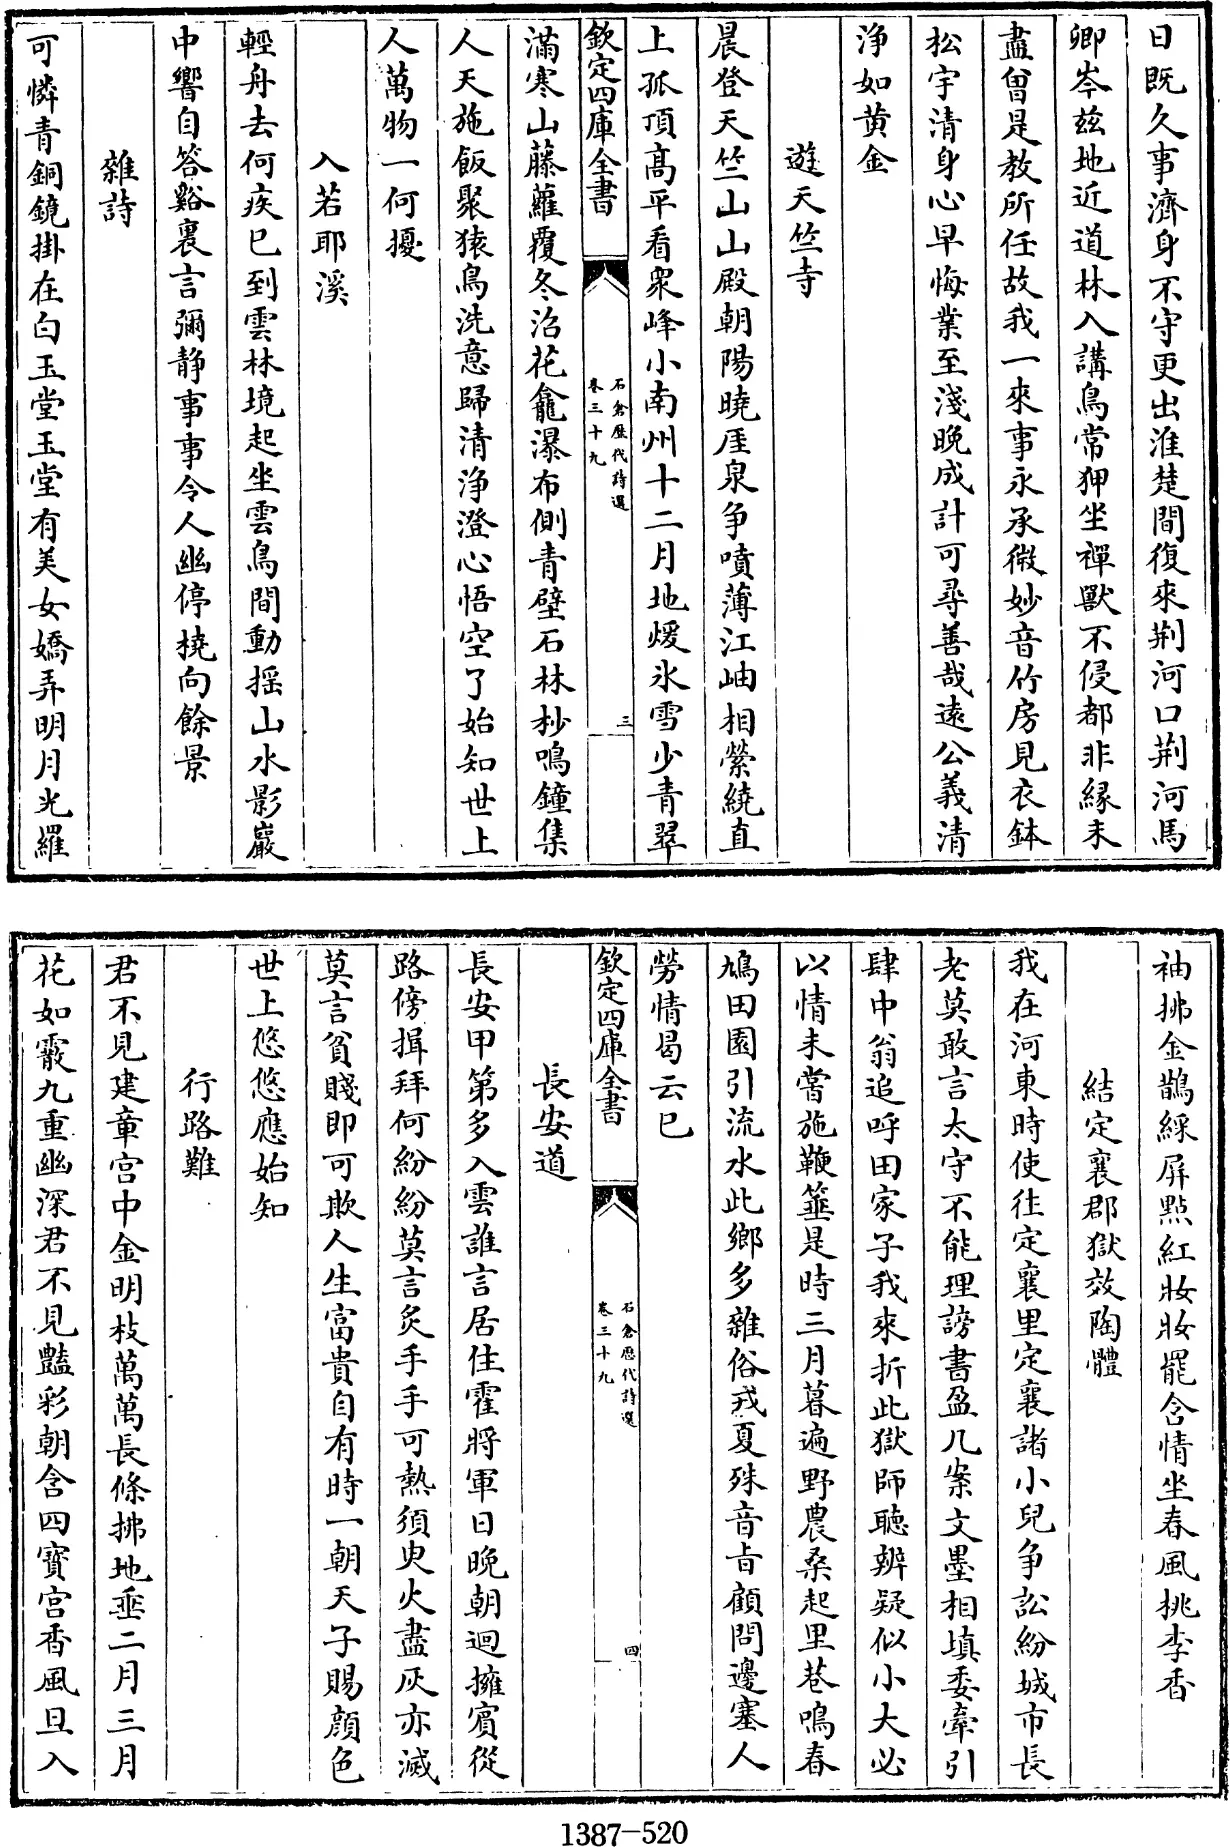 日既久事濟身不守更出淮楚間復來荆河口荆河馬
卿岑兹地近道林入講鳥常狎坐禪獸不侵都非緣未
盡曾是教所任故我一來事永承微妙音竹房見衣鉢
松宇清身心早悔業至淺晚成計可尋善哉遠公義清
浄如黄金
遊天竺寺
晨登天竺山山殿朝陽曉厓泉争噴薄江岫相縈繞直
上孤頂髙平看衆峰小南州十二月地煖氷雪少青翠
欽定四庫全書
石倉歷代詩選
卷三十九
三
滿寒山藤蘿覆冬沼花龕瀑布側青壁石林杪鳴鐘集
人天施飯聚猿鳥洗意歸清浄澄心悟空了始知世上
人萬物一何擾
入若耶溪
輕舟去何疾已到雲林境起坐雲鳥間動揺山水影巖
中響自答谿裏言彌静事事令人幽停橈向餘景
雜詩
可憐青銅鏡掛在白玉堂玉堂有美女嬌弄明月光羅
袖拂金鵲綵屏㸃紅妝妝罷含情坐春風桃李香
結定襄郡獄效陶體
我在河東時使往定襄里定襄諸小兒争訟紛城市長
老莫敢言太守不能理謗書盈几案文墨相填委牽引
肆中翁追呼田家子我來折此獄師聽辨疑似小大必
以情未嘗施鞭箠是時三月暮遍野農桑起里巷鳴春
鳩田園引流水此鄉多雜俗戎夏殊音㫖顧問邊塞人
勞情曷云已
欽定四庫全書
石倉歷代詩選
卷三十九
四
長安道
長安甲第多入雲誰言居住霍將軍日晚朝迴擁賔從
路傍揖拜何紛紛莫言炙手手可熱須臾火盡灰亦滅
莫言貧賤即可欺人生富貴自有時一朝天子賜顔色
世上悠悠應始知
行路難
君不見建章宫中金明枝萬萬長條拂地垂二月三月
花如霰九重幽深君不見豔彩朝含四寳宫香風旦入
1387-520